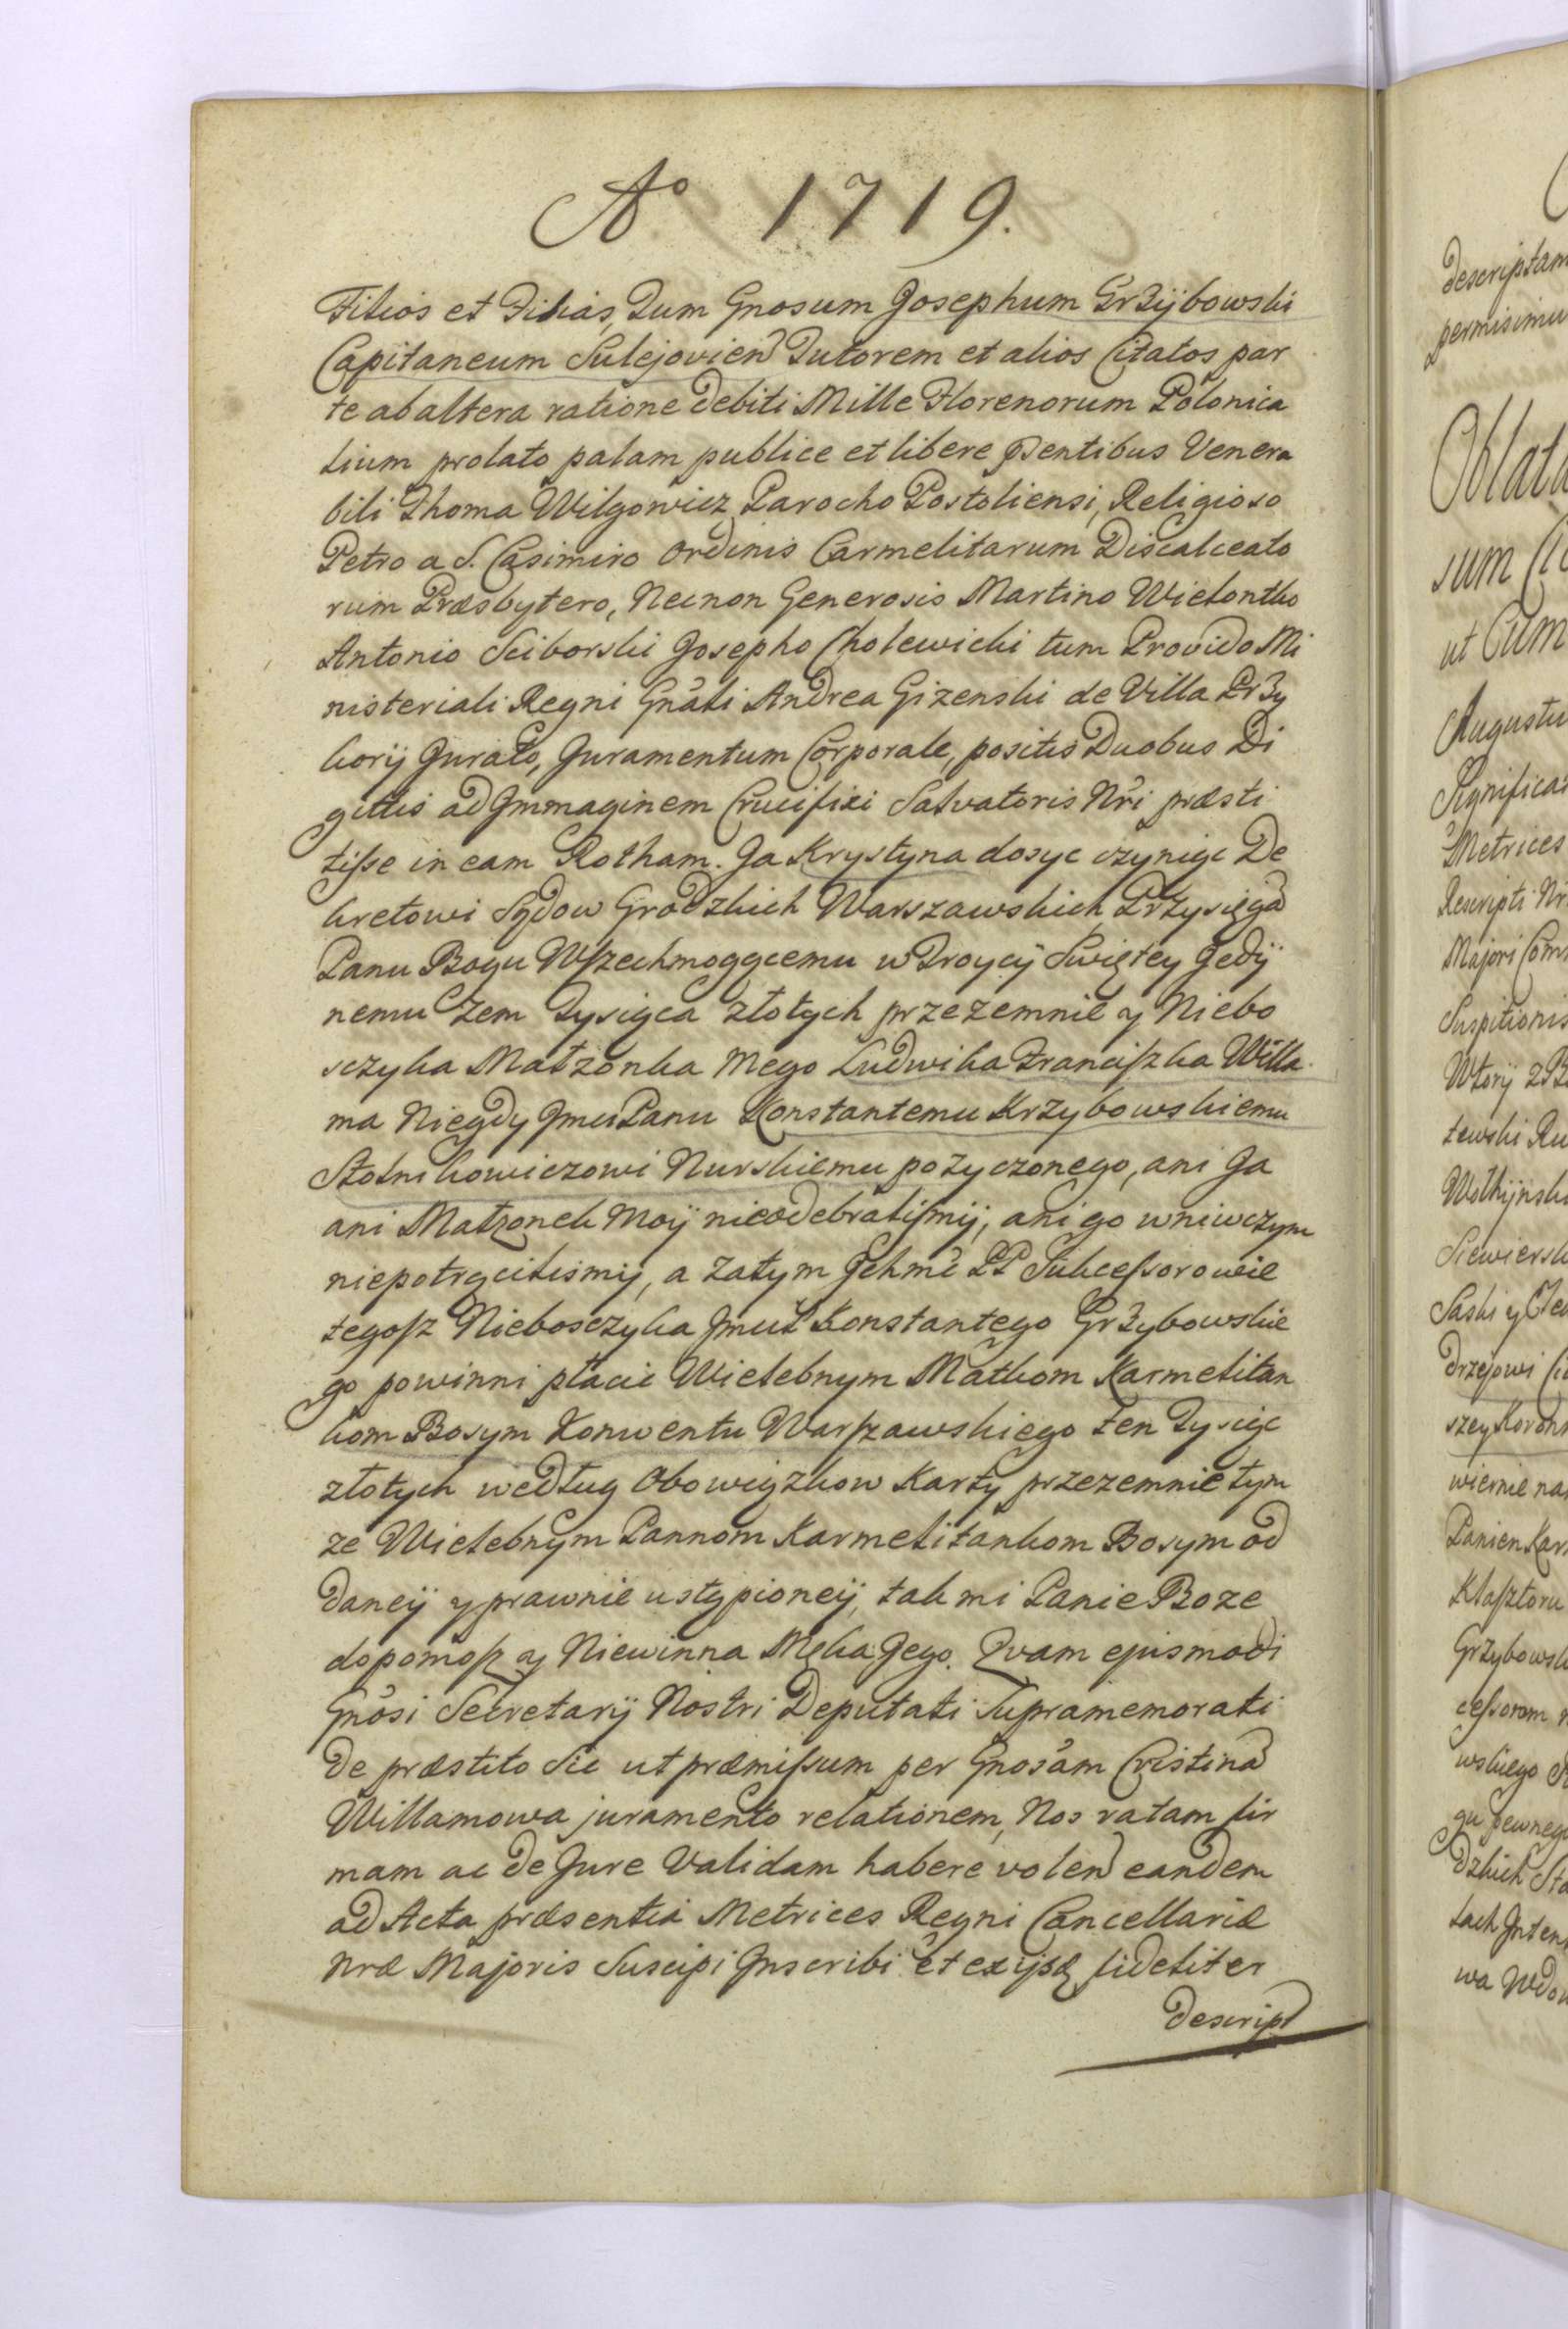 Aº 1719.
Filios et Filias, Tum Gnosum Josephum Grzÿbowski
Capitaneum Sulejovien Tutorem et alios Citatos par
te ab altera ratione debiti Mille Florenorum Polonica
lium prolato palam publice et libere pntibus Venera
bili Thoma Wilgowicz Parocho Postoliensi, Religioso
Petro a S. Casimiro Ordinis Carmelitarum Discalceato
rum Præsbytero, Necnon Generosis Martino Wielontko
Antonio Sciborski Josepho Cholewicki tum Provido Mi
nisteriali Regni Gnali Andrea Gizenski de Villa Przy
korÿ Jurato, Juramentum Corporale, positis Duobus Di
gittis ad Jmmaginem Crucifixi Salvatoris Nri præsti
tiſse in eam Rotham. Ja Krystyna dosyc czyniąc De
kretowi Sądow Grodzkich Warszawskich Przysięgą
Panu Bogu Wſzechmogącemu w Troycÿ Swiętey Jedÿ
nemu Zem Tysiąca złotych przezemnie y Niebo
sczyka Małzonka Mego Ludwika Franciſzka Willa
ma Niegdy Jmci Panu Konstantemu Krzybowskiemu
Stolnikowiczowi Nurskiemu pozyczonego, ani Ja
ani Małzonek Moÿ nieodebraliſmÿ, ani go wniwczym
niepotrącilismÿ, a zatym Jchmć PP Sukceſsorowie
tegoſz Niebosczyka Jmći Konstantego Grzybowskie
go powinni płacic Wielebnym Matkom Karmelitan
kom Bosym Konwentu Warſzawskiego ten Tysiąc
złotych według Obowiązkow Karty przezemnie tym
ze Wielebnym Pannom Karmelitankom Bosym od
daneÿ y prawnie ustąpioneÿ, tak mi Panie Boze
dopomoſz y Niewinna Męka Jego. Qvam ejusmodi
Gnosi Secretarÿ Nostri Deputati Supramemorati
de præstito sic ut præmiſsum per Gnosam Cristina
Willamowa juramento relationem, Nos ratam fir
mam ac de Jure Validam habere volen eandem
ad Acta præsentia Metrices Regni Cancellariæ
Nræ Majoris Suscipi Jnscribi et ex ijsq fideliter
descript
descriptam
permisimu
Oblata
sum
ut Cum
Augustu
Significa
Metrices
Rescripti
Majori Com
Suspitionis
Wtorÿ
Wołhÿnsk
Siewiersk
Saski y
drzejowi
szey Koron
wiernie na
Panien Kar
Klaſztoru
Grzybowsk
ceſsorom
wskiego
gu pewneg
dzkich